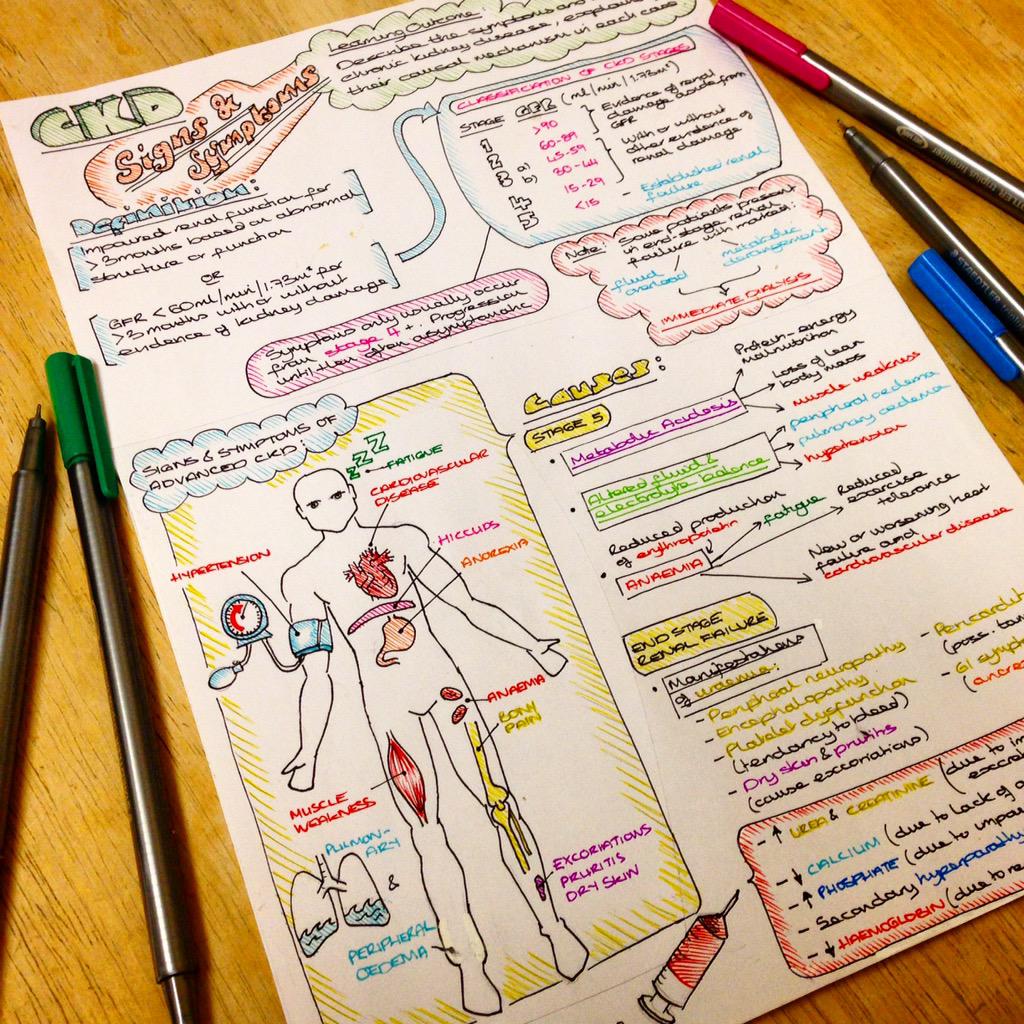 Learning Outcome:
Describe the symptoms and
chronic kidney disease, explain
their causal mechanism in each case
CKD
Signs &
Symptoms
Definition:
Impaired renal function for
>3months based on abnormal
structure or function
OR
GFR <60ml/min/1.73m² for
>3months with or without
evidence of kidney damage
CLASSIFICATION OF CKD STAGES
STAGE GFR (ml/min/1.73m²)
1 >90
2 60-89
3 a) 45-59
b) 30-44
4 15-29
5 <15
Evidence of renal
damage aside from
GFR
With or without
other evidence of
renal damage
- Established renal
failure
Note: Some patients present
in end stage renal
failure with marked:
fluid
overload
metabolic
derangement
IMMEDIATE DIALYSIS
Symptoms only usually occur
from stage 4+. Progression
until then often asymptomatic
SIGNS & SYMPTOMS OF
ADVANCED CKD:
ZZZ
FATIGUE
CARDIOVASCULAR
DISEASE
HICCUPS
ANOREXIA
HYPERTENSION
ANAEMIA
BONY
PAIN
MUSCLE
WEAKNESS
PULMON-
ARY
&
PERIPHERAL
OEDEMA
EXCORIATIONS
PRURITIS
DRY SKIN
Causes:
STAGE 5
• Metabolic Acidosis
Protein-energy
malnutrition
Loss of lean
body mass
muscle weakness
• Altered fluid &
electrolyte balance
peripheral oedema
pulmonary oedema
hypertension
Reduced production
erythropoietin
• ANAEMIA
fatigue
Reduced
exercise
tolerance
New or worsening heart
failure and
cardiovascular disease
END STAGE
RENAL FAILURE
• Manifestations
of uraemia:
- Peripheral neuropathy
- Encephalopathy
- Platelet dysfunction
(tendency to bleed)
- Dry skin & pruritis
(cause excoriations)
- Pericardit
(poss. tam
- GI sympt
(anore
- ↑ UREA & CREATININE (due to im
excret
- ↓ CALCIUM (due to lack of a
- ↑ PHOSPHATE (due to impai
- Secondary hyperparathy
- ↓ HAEMOGLOBIN (due to re
STAEDTLER